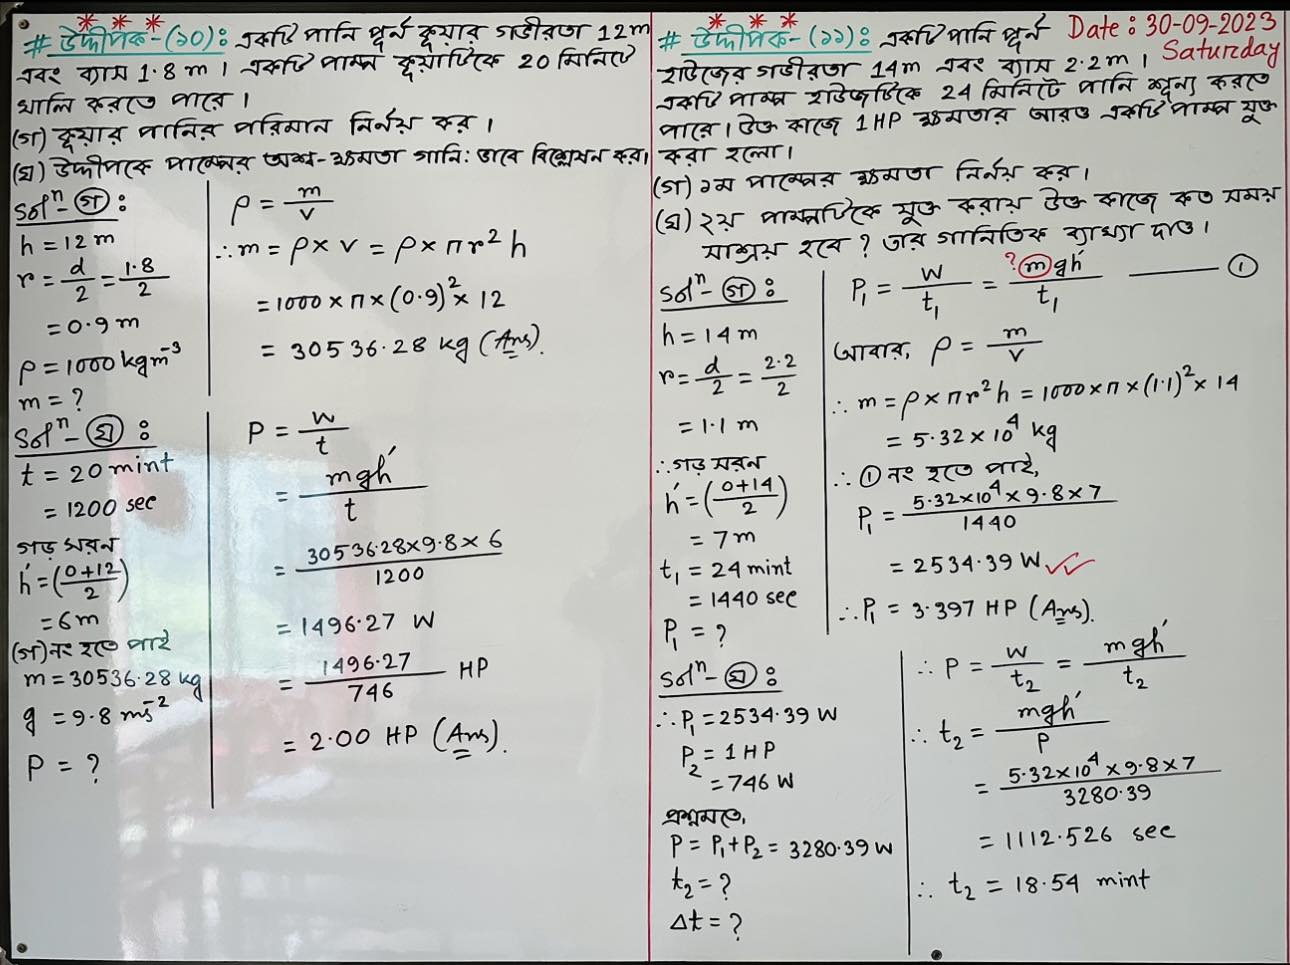 # উদ্দীপক-(১০): একটি পানি পূর্ন কুয়ার গভীরতা 12m
এবং ব্যাস 1.8 m। একটি পাম্প কুয়াটিকে 20 মিনিটে
খালি করতে পারে।
(গ) কুয়ার পানির পরিমান নির্নয় কর।
(ঘ) উদ্দীপকে পাম্পের অশ্ব-ক্ষমতা গানি: ভাবে বিশ্লেষন কর।
Solⁿ-(গ):
h = 12 m
r = d/2 = 1.8/2
= 0.9 m
ρ = 1000 kgm⁻³
m = ?
ρ = m/v
∴ m = ρ × v = ρ × πr² h
= 1000 × π × (0.9)² × 12
= 30536.28 kg (Ans).
Solⁿ-(ঘ):
t = 20 mint
= 1200 sec
গড় সরন
h́ = (0+12/2)
= 6m
(গ) নং হতে পাই
m = 30536.28 kg
g = 9.8 ms⁻²
P = ?
P = w/t
= mgh́/t
= 30536.28×9.8×6/1200
= 1496.27 W
= 1496.27/746 HP
= 2.00 HP (Ans).
# উদ্দীপক-(১১): একটি পানি পূর্ন Date: 30-09-2023
Saturday
হাউজের গভীরতা 14m এবং ব্যাস 2.2 m।
একটি পাম্প হাউজটিকে 24 মিনিটে পানি শূন্য করতে
পারে। উক্ত কাজে 1HP ক্ষমতার আরও একটি পাম্প যুক্ত
করা হলো।
(গ) ১ম পাম্পের ক্ষমতা নির্নয় কর।
(ঘ) ২য় পাম্পটিকে যুক্ত করায় উক্ত কাজে কত সময়
সাশ্রয় হবে? তার গানিতিক ব্যাখ্যা দাও।
Solⁿ-(গ):
h = 14 m
r = d/2 = 2.2/2
= 1.1 m
∴ গড় সরন
h́ = (0+14/2)
= 7m
t₁ = 24 mint
= 1440 sec
P₁ = ?
P₁ = w/t₁ = ?mgh́/t₁ —— ①
আবার, ρ = m/v
∴ m = ρ × πr² h = 1000 × π × (1.1)² × 14
= 5.32 × 10⁴ kg
∴ ① নং হতে পাই,
P₁ = 5.32×10⁴ × 9.8 × 7/1440
= 2534.39 W
∴ P₁ = 3.397 HP (Ans).
Solⁿ-(ঘ):
∴ P₁ = 2534.39 W
P₂ = 1 HP
= 746 W
প্রশ্নমতে,
P = P₁ + P₂ = 3280.39 W
t₂ = ?
Δt = ?
∴ P = w/t₂ = mgh́/t₂
∴ t₂ = mgh́/P
= 5.32×10⁴ × 9.8 × 7/3280.39
= 1112.526 sec
∴ t₂ = 18.54 mint